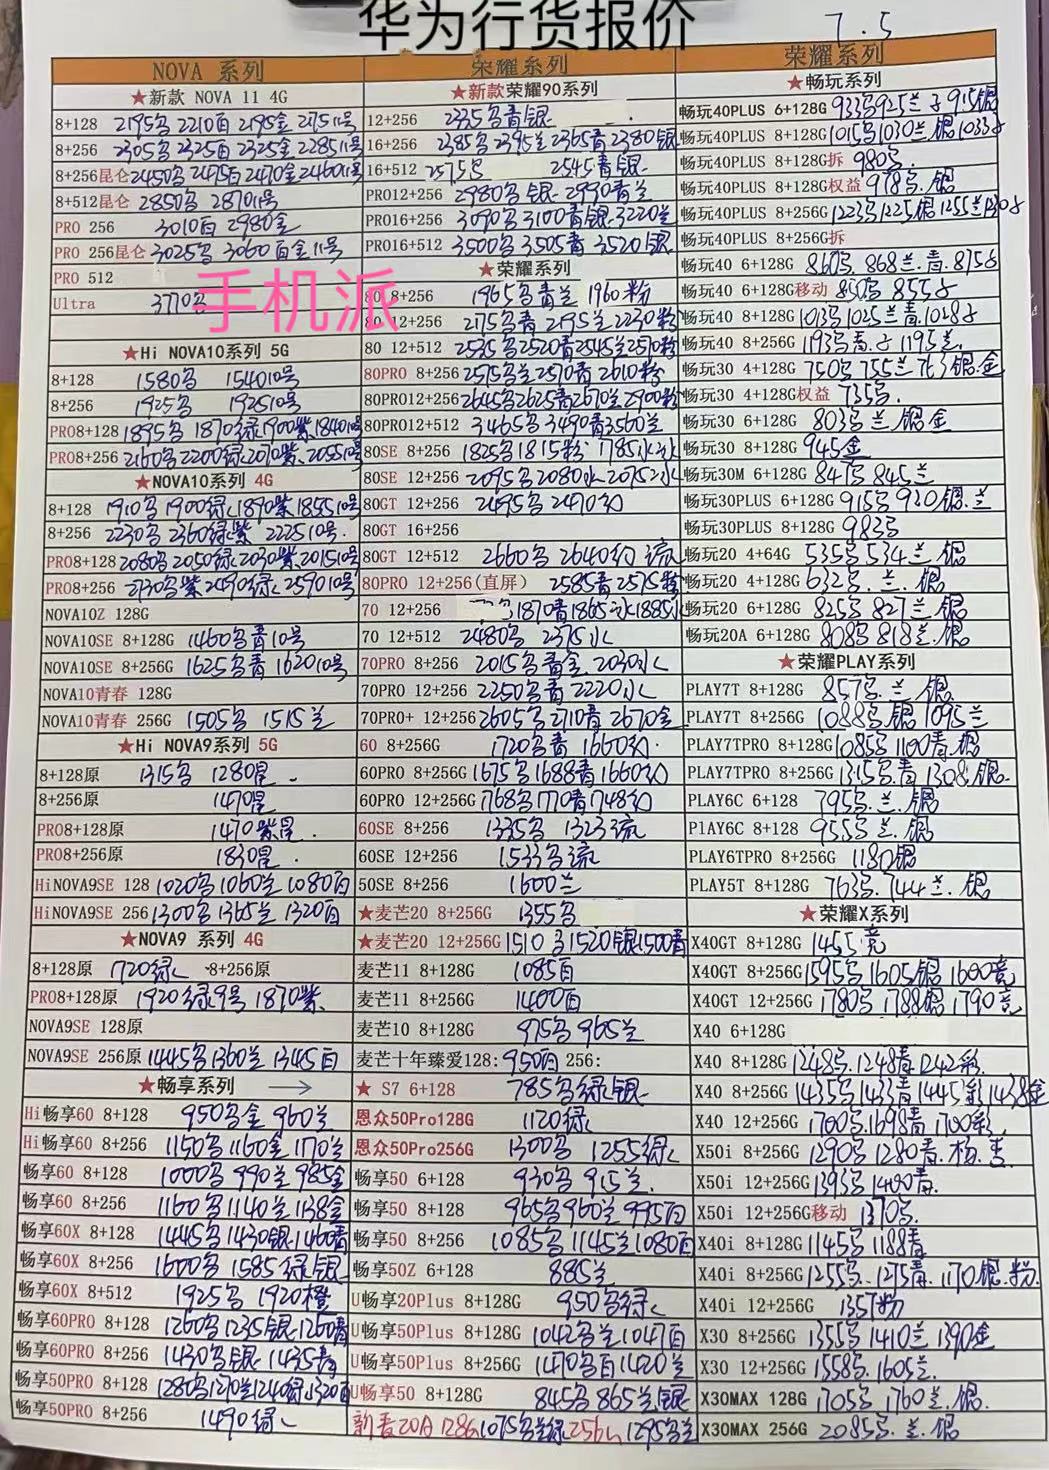 华为行货报价
7.5
NOVA 系列
★新款 NOVA 11 4G
8+128 2195名 2210百 2195金 2175 11号
8+256 2305名 2325百 2325金 2285 11号
8+256昆仑 2450名 2475百 2470金 2460 11号
8+512昆仑 2850名 2870 11号
PRO 256 3010百 2980金
PRO 256昆仑 3025名 3060百金 11号
PRO 512
Ultra 3770名
手机派
★Hi NOVA10系列 5G
8+128 1580名 1540 10号
8+256 1925名 1925 10号
PRO8+128 1895名 1870绿 1900紫 1840 10号
PRO8+256 2160名 2200绿 2070紫 2055 10号
★NOVA10系列 4G
8+128 1910名 1900绿 1890紫 1855 10号
8+256 2230名 2360绿紫 2225 10号
PRO8+128 2080名 2050绿 2030紫 2015 10号
PRO8+256 2730名紫 2490绿 2590 10号
NOVA10Z 128G
NOVA10SE 8+128G 1460名青 10号
NOVA10SE 8+256G 1625名青 1620 10号
NOVA10青春 128G
NOVA10青春 256G 1505名 1515兰
★Hi NOVA9系列 5G
8+128原 1315名 1280昆
8+256原 1470昆
PRO8+128原 1470紫昆
PRO8+256原 1830昆
HiNOVA9SE 128 1020名 1060兰 1080百
HiNOVA9SE 256 1300名 1365兰 1320百
★NOVA9 系列 4G
8+128原 1720绿 8+256原
PRO8+128原 1920绿9号 1870紫
NOVA9SE 128原
NOVA9SE 256原 1445名 1360兰 1345百
★畅享系列 →
Hi畅享60 8+128 950名金 960兰
Hi畅享60 8+256 1150名 1160金 1170兰
畅享60 8+128 1000名 990兰 985金
畅享60 8+256 1160名 1140兰 1138金
畅享60X 8+128 1445名 1430银 1460青
畅享60X 8+256 1600名 1585绿银
畅享60X 8+512 1925名 1920橙
畅享60PRO 8+128 1260名 1235银 1260青
畅享60PRO 8+256 1430名银 1435青
畅享50PRO 8+128 1280名 1270兰 1240绿 1320百
畅享50PRO 8+256 1490绿
荣耀系列
★新款荣耀90系列
12+256 2235名青银
16+256 2385名 2395兰 2365青 2380银
16+512 2575名 2545青银
PRO12+256 2980名银 2990青兰
PRO16+256 3090名 3100青银 3220兰
PRO16+512 3500名 3505青 3520银
★荣耀系列
80 8+256 1965名青兰 1960粉
80 12+256 2175名青 2195兰 2230粉
80 12+512 2535名 2520青 2545兰 2570粉
80PRO 8+256 2575名兰 2570青 2610粉
80PRO12+256 2645名 2625青 2670兰 2900粉
80PRO12+512 3465名 3490青 3560兰
80SE 8+256 1825名 1815粉 1785冰
80SE 12+256 2095名 2080 2075冰
80GT 12+256 2495名 2470幻
80GT 16+256
80GT 12+512 2660名 2640幻 流
80PRO 12+256(直屏) 2585青 2575粉
70 12+256 1870青 1865冰 1885水
70 12+512 2480名 2375水
70PRO 8+256 2015名青金 2030水
70PRO 12+256 2250名青 2220水
70PRO+ 12+256 2605名 2710青 2670金
60 8+256G 1720名青 1660幻
60PRO 8+256G 1675名 1688青 1660幻
60PRO 12+256G 1768名 1770青 1748幻
60SE 8+256 1335名 1323流
60SE 12+256 1533名流
50SE 8+256 1600兰
★麦芒20 8+256G 1355名
★麦芒20 12+256G 1510名 1520银 1500青
麦芒11 8+128G 1085百
麦芒11 8+256G 1400百
麦芒10 8+128G 975名 965兰
麦芒十年臻爱128: 950百 256:
★ S7 6+128 785名绿银
恩众50Pro128G 1120绿
恩众50Pro256G 1300名 1255绿
畅享50 6+128 930名 915兰
畅享50 8+128 965名 960兰 995百
畅享50 8+256 1085名 1145兰 1080百
畅享50Z 6+128 885兰
U畅享20Plus 8+128G 950名绿
U畅享50Plus 8+128G 1042名兰 1047百
U畅享50Plus 8+256G 1470名百 1420兰
U畅享50 8+128G 845名 865兰银
新麦20A 128G 1075名兰绿 256G 1295名兰
荣耀系列
★畅玩系列
畅玩40PLUS 6+128G 933名 925兰子 915银
畅玩40PLUS 8+128G 1015名 1030兰银 1033子
畅玩40PLUS 8+128G拆 980名
畅玩40PLUS 8+128G权益 978名银
畅玩40PLUS 8+256G 1223名 1225银 1255兰 1230子
畅玩40PLUS 8+256G拆
畅玩40 6+128G 860名 868兰青 875子
畅玩40 6+128G移动 850名 855子
畅玩40 8+128G 1013名 1025兰青 1028子
畅玩40 8+256G 1193名青子 1195兰
畅玩30 4+128G 750名 755兰 763银金
畅玩30 4+128G权益 735名
畅玩30 6+128G 803名兰银金
畅玩30 8+128G 945金
畅玩30M 6+128G 847名 845兰
畅玩30PLUS 6+128G 915名 920银兰
畅玩30PLUS 8+128G 983名
畅玩20 4+64G 535名 534兰银
畅玩20 4+128G 632名兰银
畅玩20 6+128G 825名 827兰银
畅玩20A 6+128G 808名 818兰银
★荣耀PLAY系列
PLAY7T 8+128G 857名兰银
PLAY7T 8+256G 1088名银 1095兰
PLAY7TPRO 8+128G 1085名 1100青银
PLAY7TPRO 8+256G 1315名青 1308银
PLAY6C 6+128 795名兰银
PlAY6C 8+128 955名兰银
PLAY6TPRO 8+256G 1180银
PLAY5T 8+128G 763名 744兰银
★荣耀X系列
X40GT 8+128G 1455竞
X40GT 8+256G 1595名 1605银 1600竞
X40GT 12+256G 1780名 1788银 1790竞
X40 6+128G
X40 8+128G 1248名 1248青 1242彩
X40 8+256G 1435名 1433青 1445彩 1438金
X40 12+256G 1700名 1698青 1700彩
X50i 8+256G 1290名 1280青杨杏
X50i 12+256G 1393名 1400青
X50i 12+256G移动 1370名
X40i 8+128G 1145名 1188青
X40i 8+256G 1255名 1275青 1170银粉
X40i 12+256G 1357粉
X30 8+256G 1355名 1410兰 1390金
X30 12+256G 1558名 1605兰
X30MAX 128G 1705名 1760兰银
X30MAX 256G 2085名兰银